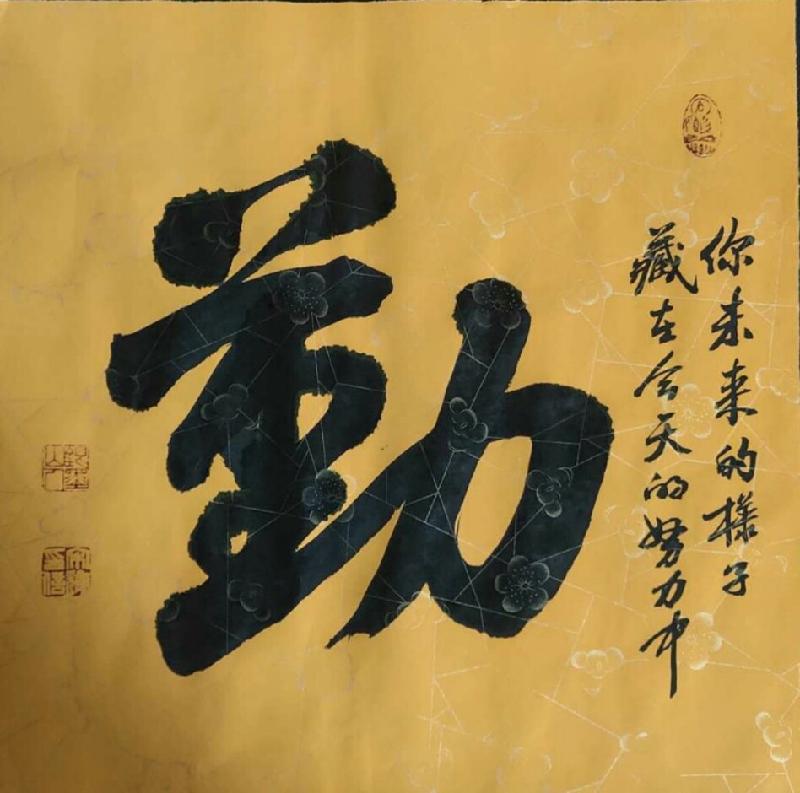 你未来的樣子
藏在今天的努力中
勤